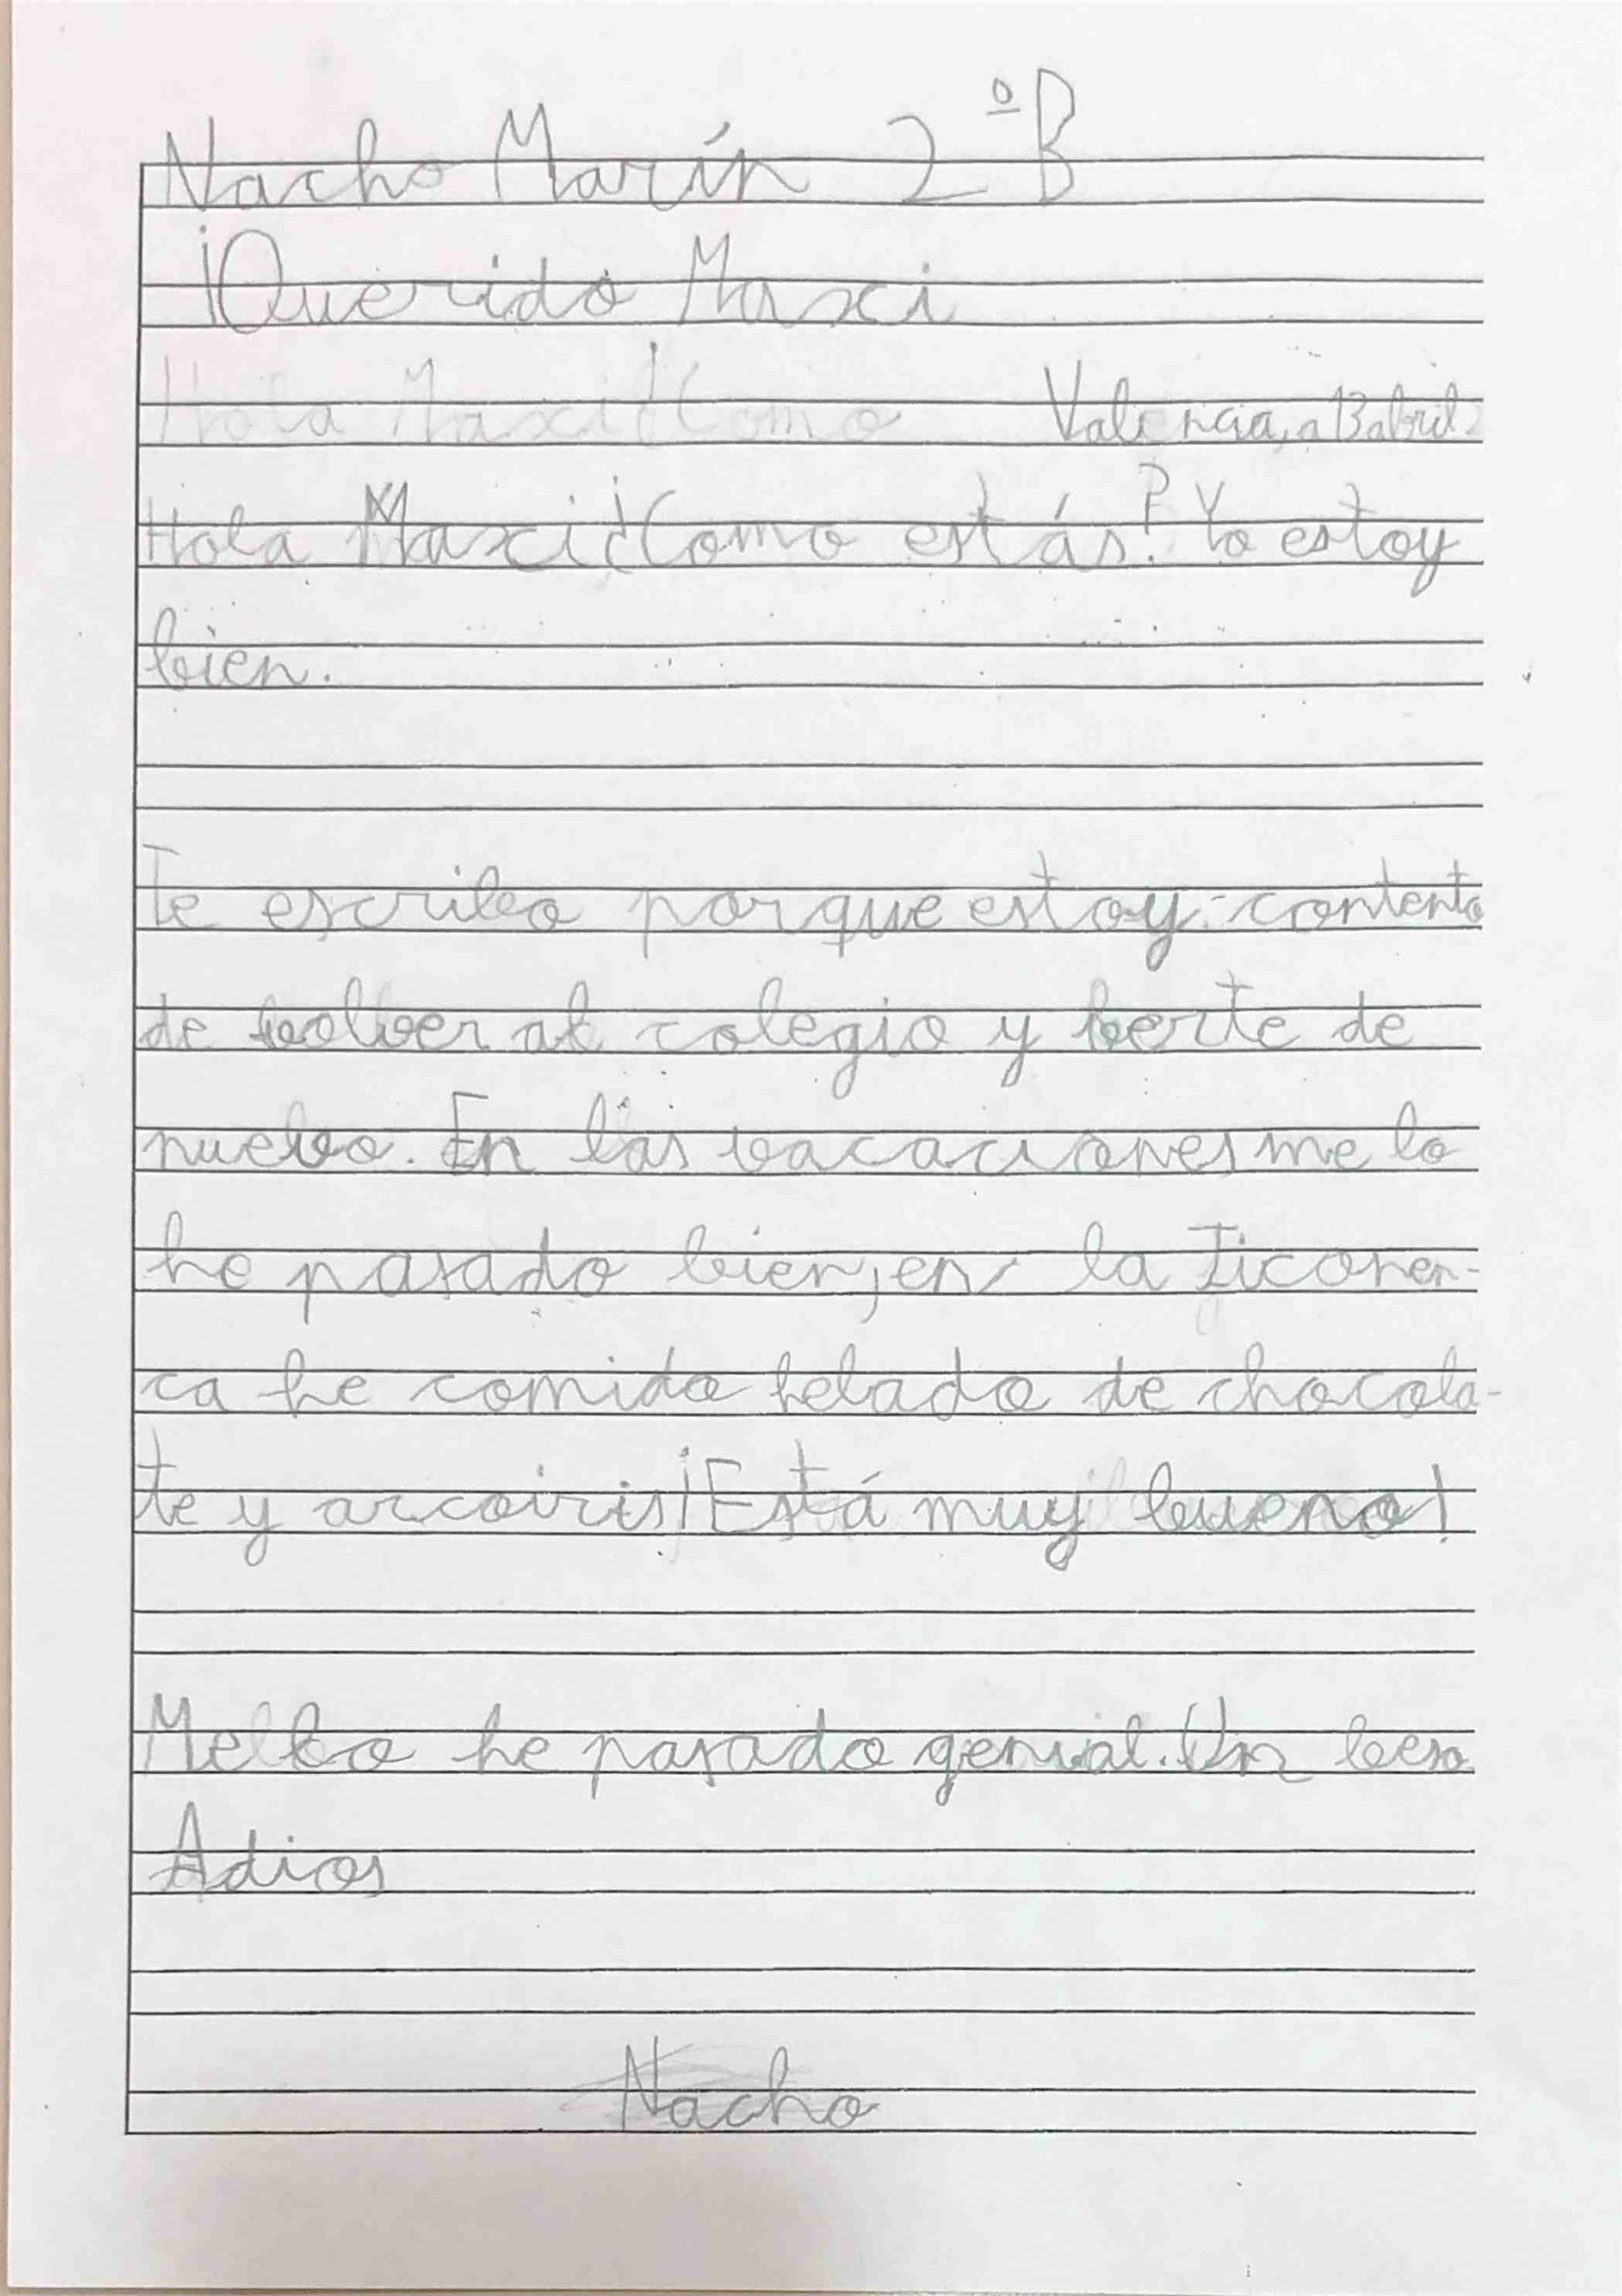 Nacho Marín 2ºB
¡Querido Maxi
Hola Maxi ¿Como Valencia, a 13 abril
Hola Maxi ¿Como estás? Yo estoy
bien.
Te escribo porque estoy contento
de bolver al colegio y berte de
nuevo. En las vacaciones me lo
he pasado bien, en la Jiconen-
ca he comido helado de chocola-
te y arcoiris ¡Está muy bueno!
Me lo he pasado genial. Un beso
Adios
Nacho